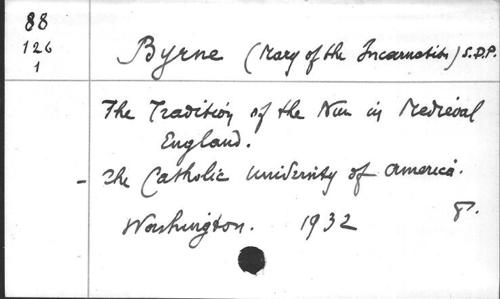 88
126
1
Byrne (Mary of the Incarnation) S.D.P.
The Tradition of the Nun in Medieval
England.
- The Catholic University of America.
Washington. 1932 8º.